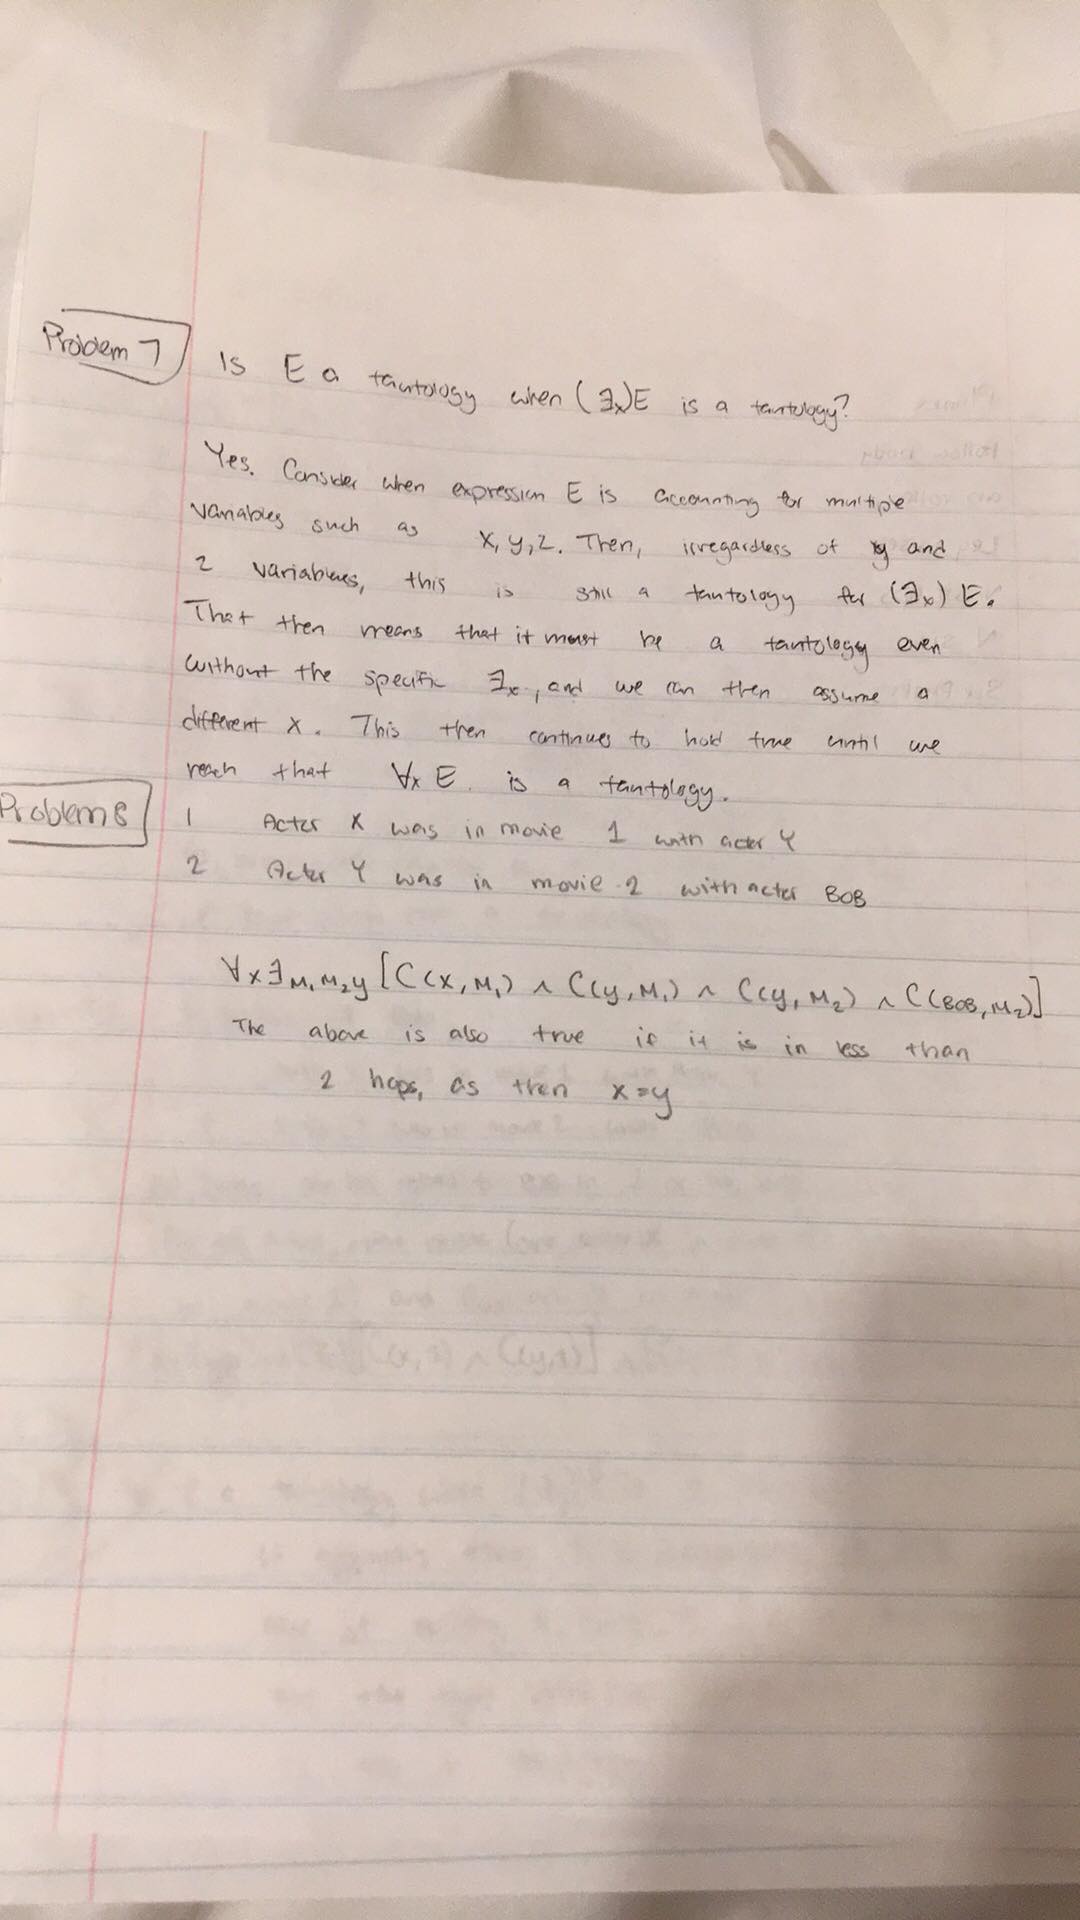 Problem 7
Is E a tautology when (∃x)E is a tautology?
Yes. Consider when expression E is accounting for multiple
variables such as x, y, z. Then, irregardless of y and
z variables, this is still a tautology for (∃x) E.
That then means that it must be a tautology even
without the specific ∃x, and we can then assume a
different x. This then continues to hold true until we
reach that ∀x E is a tautology.
Problem 8
1 Actor X was in movie 1 with actor Y
2 Actor Y was in movie 2 with actor BOB
∀x∃M₁M₂y [C(x,M₁) ∧ C(y,M₁) ∧ C(y,M₂) ∧ C(BOB,M₂)]
The above is also true if it is in less than
2 hops, as then x=y